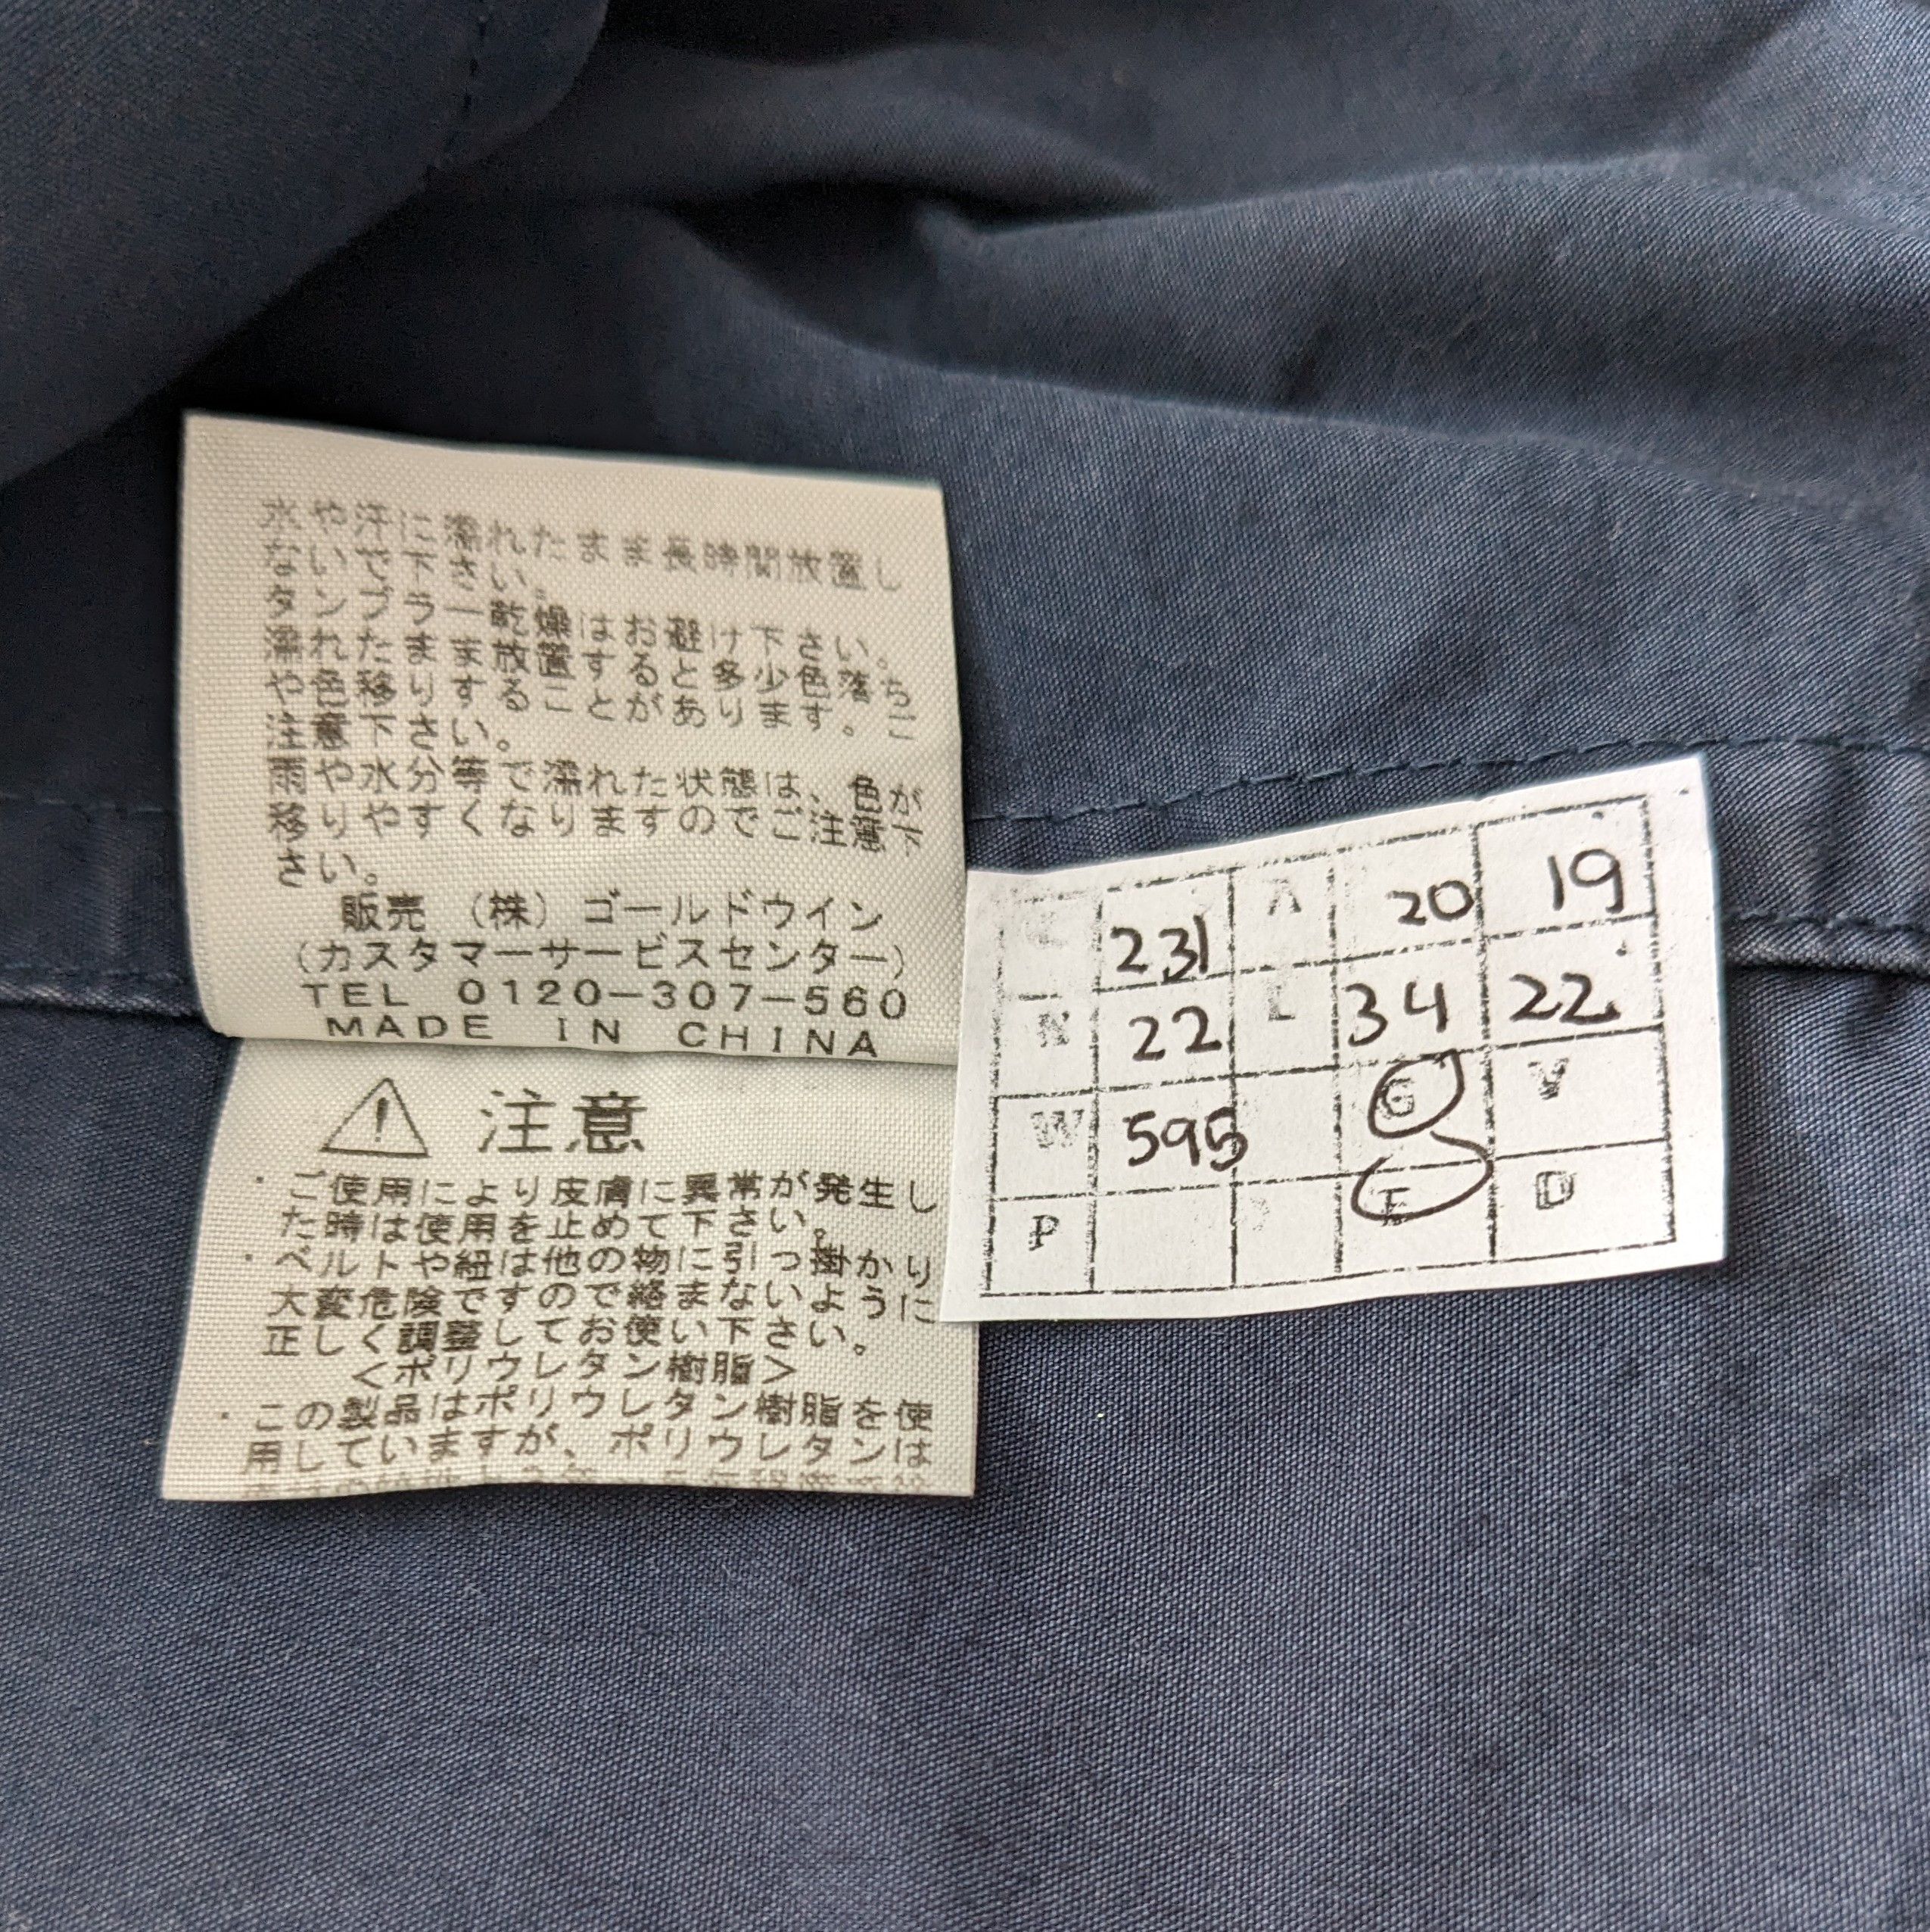 水や汗に濡れたまま長時間放置し
ないで下さい。
タンブラー乾燥はお避け下さい。
濡れたまま放置すると多少色落ち
や色移りすることがあります。ご
注意下さい。
雨や水分等で濡れた状態は、色が
移りやすくなりますのでご注意下
さい。
販売 (株) ゴールドウイン
(カスタマーサービスセンター)
TEL 0120-307-560
MADE IN CHINA
注意
・ご使用により皮膚に異常が発生し
た時は使用を止めて下さい。
・ベルトや紐は他の物に引っ掛かり
大変危険ですので絡まないように
正しく調整してお使い下さい。
<ポリウレタン樹脂>
・この製品はポリウレタン樹脂を使
用していますが、ポリウレタンは
231 A 20 19
N 22 L 34 22
W 595 G V
P E D